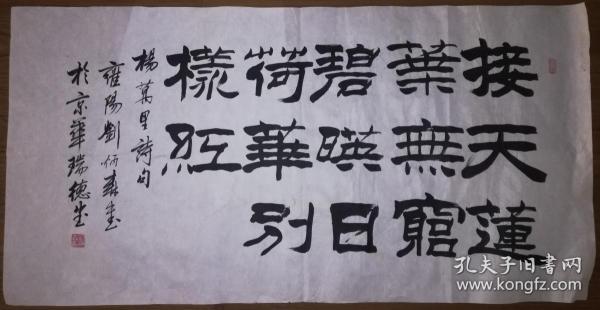 接天蓮
葉無窮
碧暎日
荷華別
樣紅
楊萬里詩句
雍陽劉炳森書
於京華瑞德堂
孔夫子旧书网
www.kongfz.com